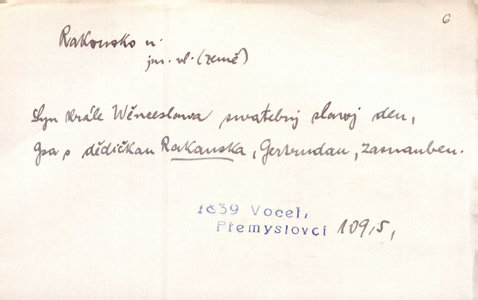 6
Rakousko n.
jm. vl. (země)
Syn krále Wěnceslawa swatebnj slawj den,
gsa s dědičkau Rakauska, Gertrudau, zasnauben.
1839 Vocel,
Přemyslovci 109/5,